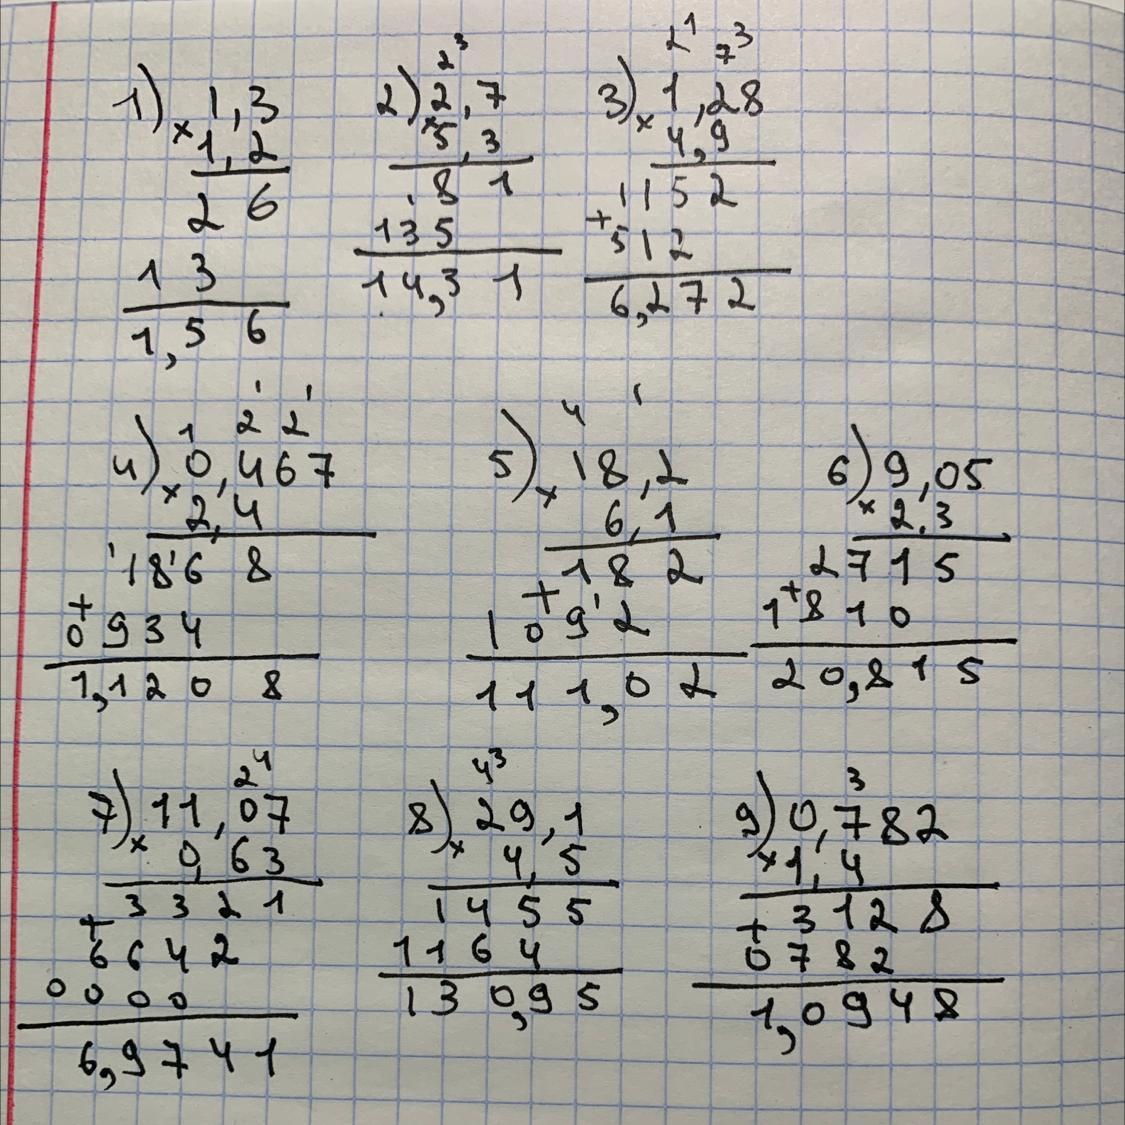 1) × 1,3
1,2
2 6
1 3
1,5 6
2 3
2) × 2,7
5,3
1 8 1
1 3 5
1 4,3 1
2 1 7 3
3) × 1,28
4,9
1 1 5 2
+ 5 1 2
6,2 7 2
1 2 1 2 1
4) × 0,467
2,4
1 1 8 1 6 8
+ 0 9 3 4
1,1 2 0 8
4 1
5) × 18,2
6,1
1 8 2
+ 1 0 9 1 2
1 1 1,0 2
6) × 9,05
2,3
2 7 1 5
+ 1 8 1 0
2 0,8 1 5
2 4
7) × 11,07
0,63
3 3 2 1
+ 6 6 4 2
0 0 0 0
6,9 7 4 1
4 3
8) × 29,1
4,5
1 4 5 5
1 1 6 4
1 3 0,9 5
3
9) × 0,782
1,4
+ 3 1 2 8
0 7 8 2
1,0 9 4 8